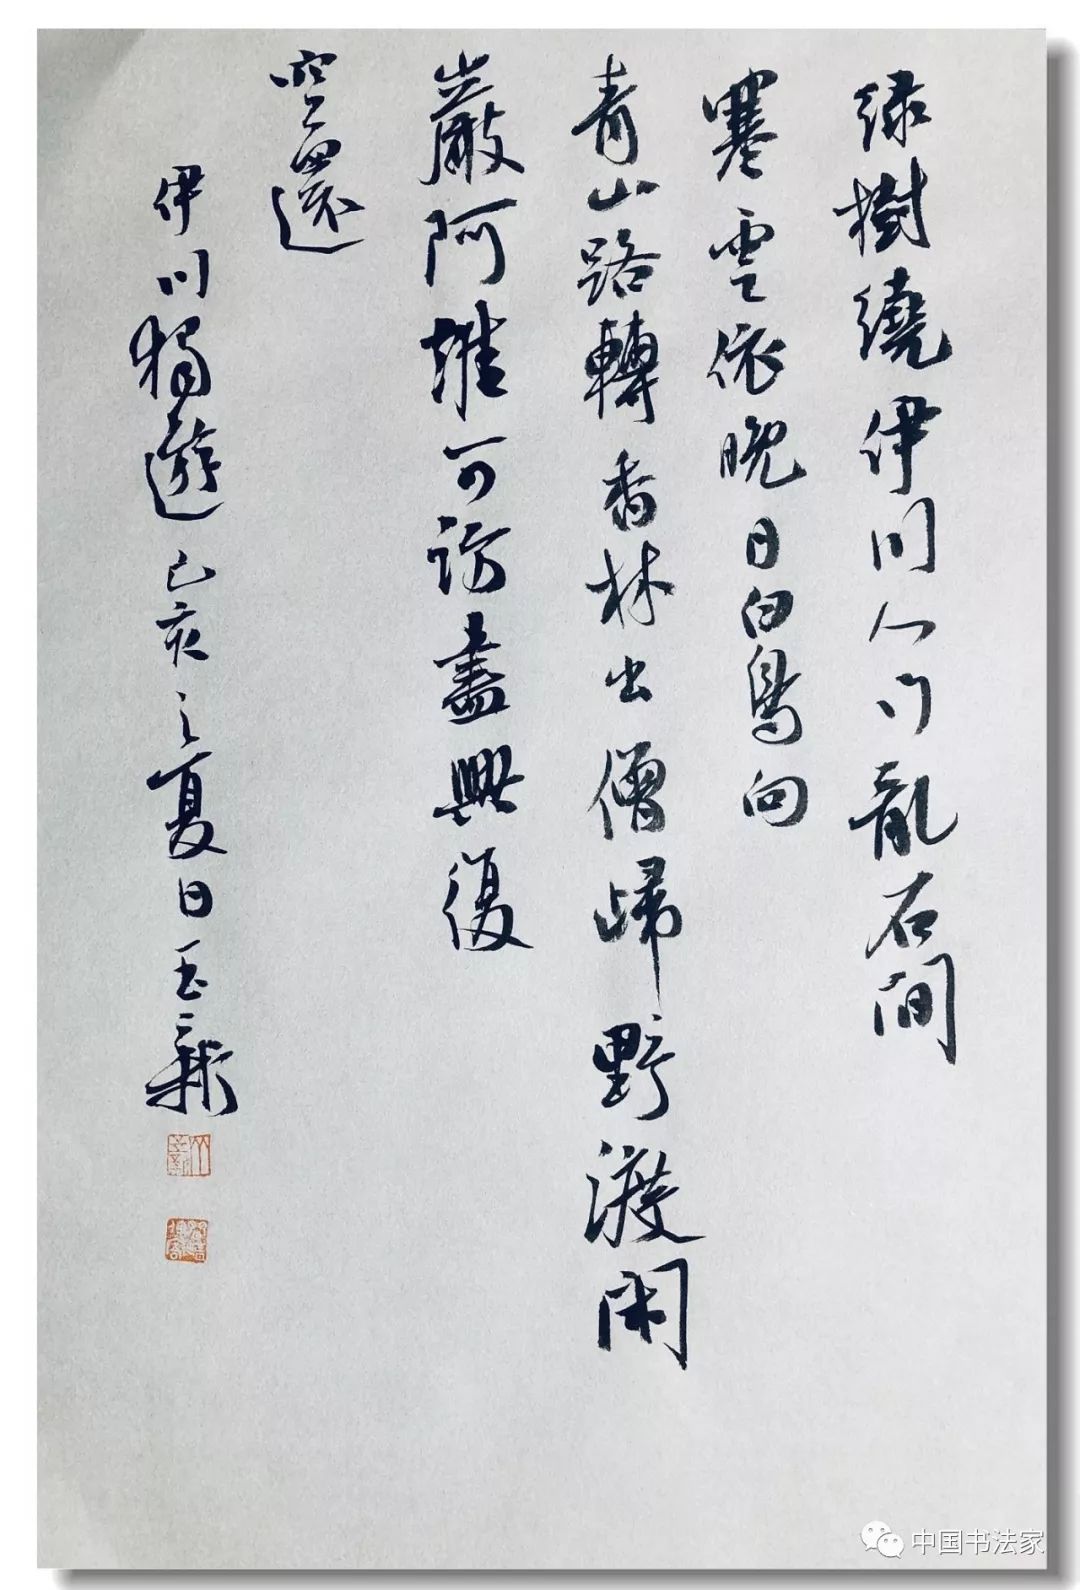 緑樹繞伊川人行亂石間
寒雲依晚日白鳥向
青山路轉香林出僧歸野渡閑
巖阿誰可訪盡興復
空還
伊川獨遊己亥之夏日
中国书法家